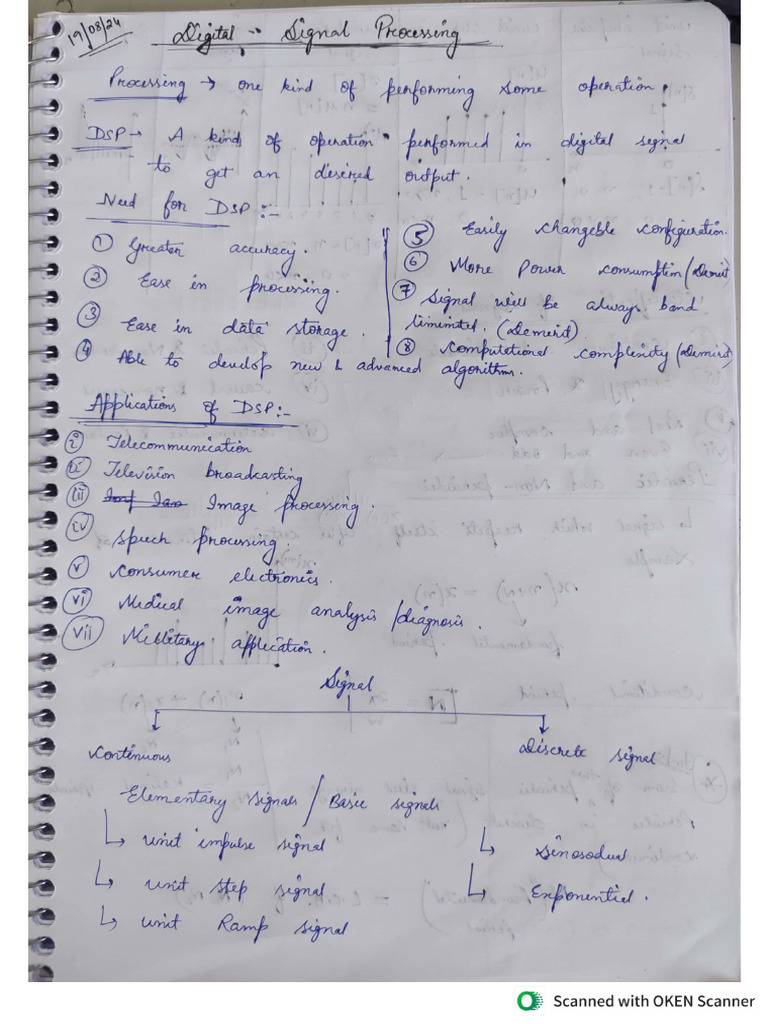 19/08/24
Digital Signal Processing
Processing → one kind of performing some operation.
DSP → A kind of operation performed in digital signal
to get an desired output.
Need for DSP :-
① Greater accuracy.
② Ease in processing.
③ Ease in data storage.
④ Able to develop new & advanced algorithms.
⑤ Easily changeble configuration.
⑥ More Power consumption (Demerit)
⑦ Signal will be always band
limited. (Demerit)
⑧ Computational complexity (Demerit)
Applications of DSP :-
i Telecommunication
ii Television broadcasting
iii Image processing.
iv Speech processing.
v Consumer electronics.
vi Medical image analysis/diagnosis.
vii Millitary application.
Signal
Continuous
Discrete signal
Elementary signals / Basic signals
↳ unit impulse signal
↳ unit step signal
↳ unit Ramp signal
↳ Sinosodual
↳ Exponential.
Scanned with OKEN Scanner